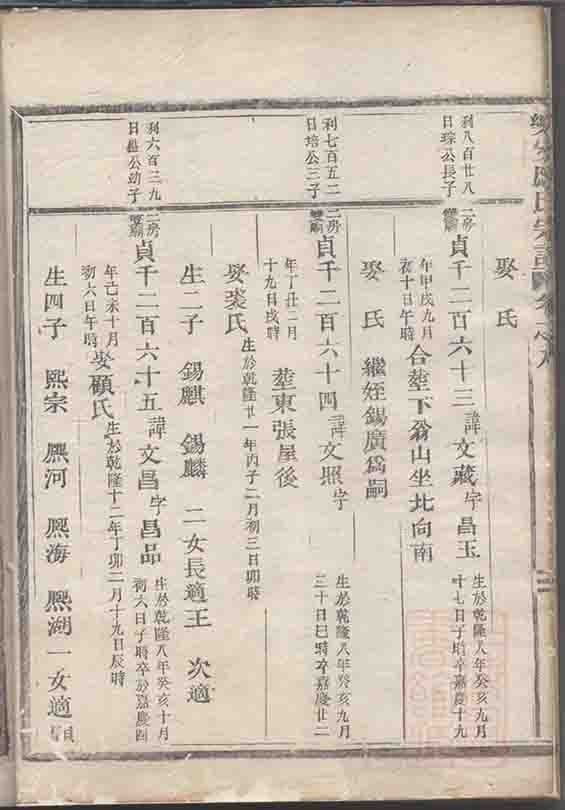 娶氏
利八百廿八
日琮公長子
二房
貞千二百六十三 諱文藏 字昌玉
生於乾隆八年癸亥九月
十七日子時卒嘉慶十九
年甲戌九月
初十日午時
合塟下翁山坐北向南
娶氏 繼姪錫廣爲嗣
利七百五二
日培公三子
二房
貞千二百六十四 諱文照 字
生於乾隆八年癸亥九月
二十日巳時卒嘉慶廿二
年丁丑二月
十九日戌時
塟東張屋後
娶裘氏
生於乾隆廿一年丙子二月初三日卯時
生二子 錫麒 錫麟 二女長適王 次適
利六百三九
公幼子
二房
貞千二百六十五 諱文昌 字昌品
生於乾隆八年癸亥十月
初六日子時卒於嘉慶四
年己未十月
初六日午時
娶顧氏
生於乾隆十二年丁卯二月十九日辰時
生四子 熙宗 熙河 熙海 熙湖 一女適